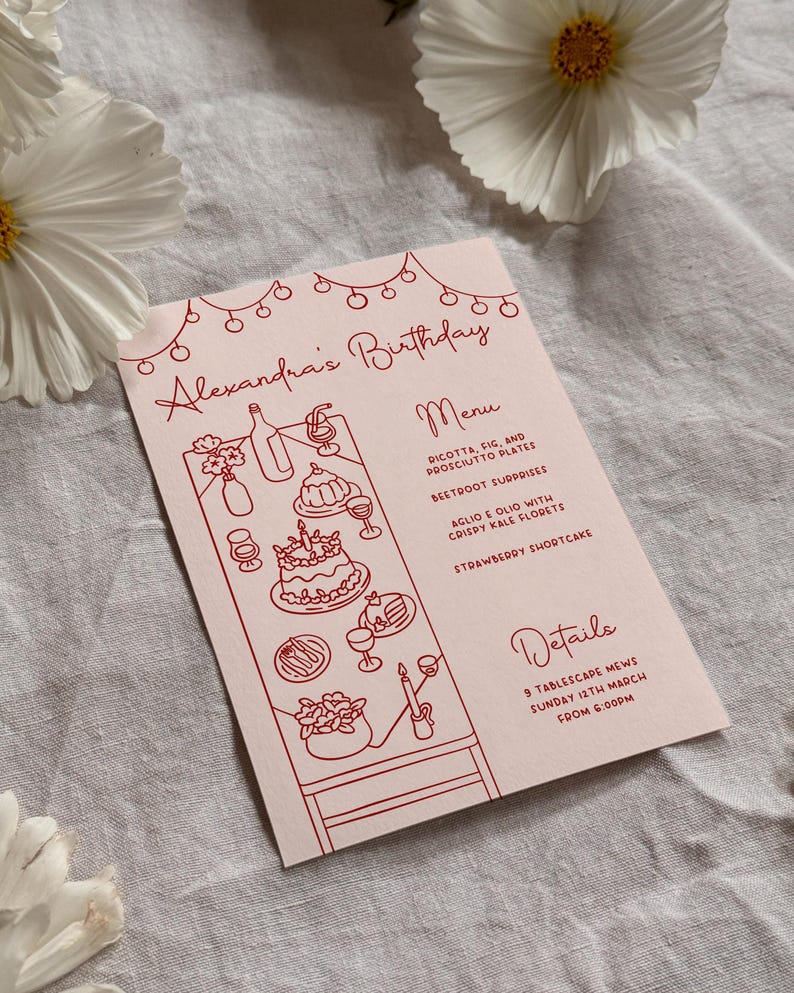 Alexandra's Birthday
Menu
RICOTTA, FIG, AND
PROSCIUTTO PLATES
BEETROOT SURPRISES
AGLIO E OLIO WITH
CRISPY KALE FLORETS
STRAWBERRY SHORTCAKE
Details
9 TABLESCAPE MEWS
SUNDAY 12TH MARCH
FROM 6:00PM